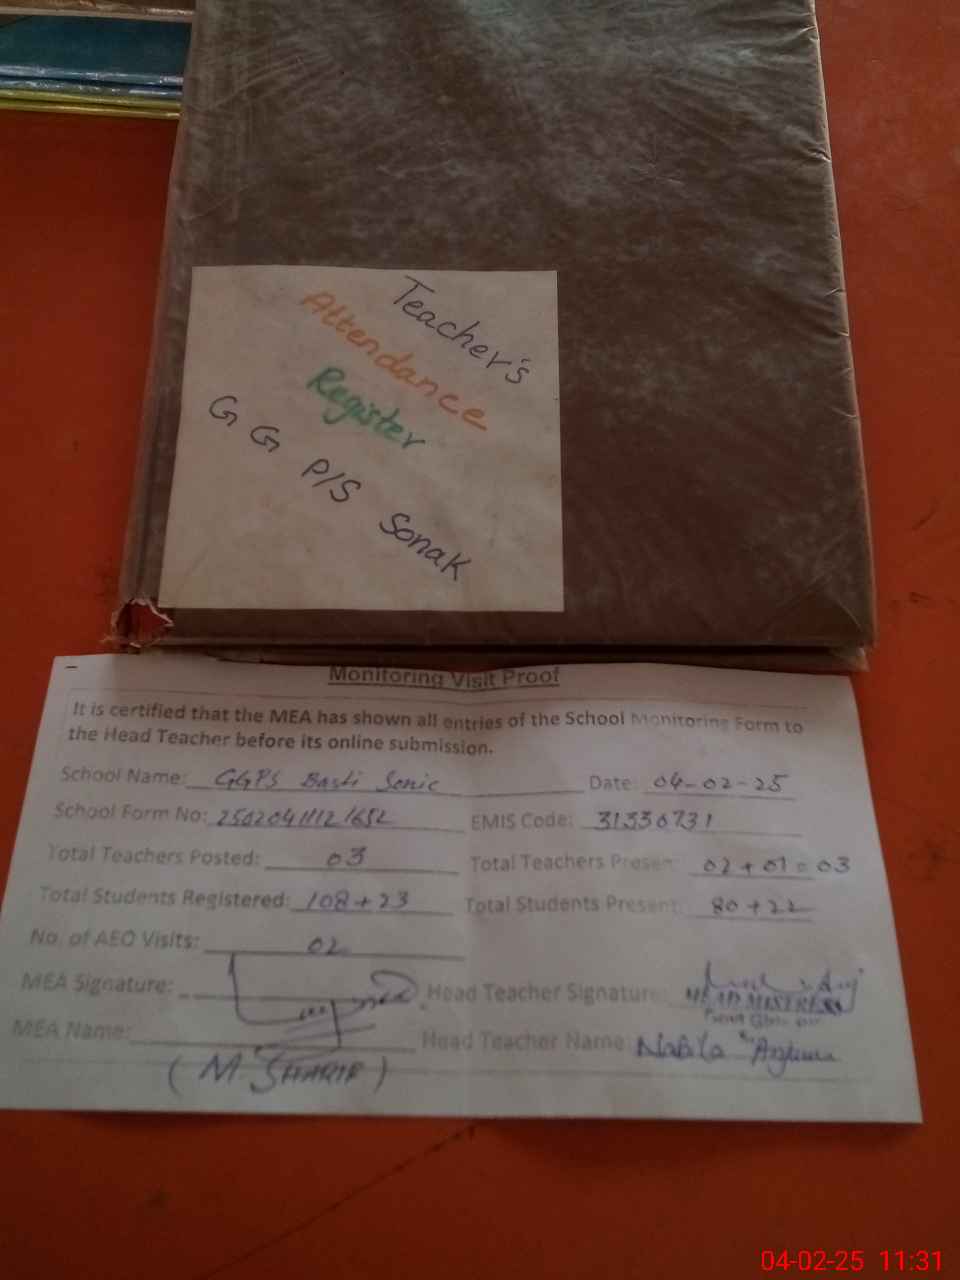 Teacher's
Attendance
Register
G G P/S Sonak
Monitoring Visit Proof
It is certified that the MEA has shown all entries of the School Monitoring Form to
the Head Teacher before its online submission.
School Name: GGPS Basti Sonic Date: 04-02-25
School Form No: 25020411121652 EMIS Code: 31330731
Total Teachers Posted: 03 Total Teachers Present: 02 + 01 = 03
Total Students Registered: 108 + 23 Total Students Present: 80 + 22
No. of AEO Visits: 02
MEA Signature: Head Teacher Signature:
HEAD MISTRESS
MEA Name: Head Teacher Name: Nabila Anjum
(M. SHARIF)
04-02-25 11:31